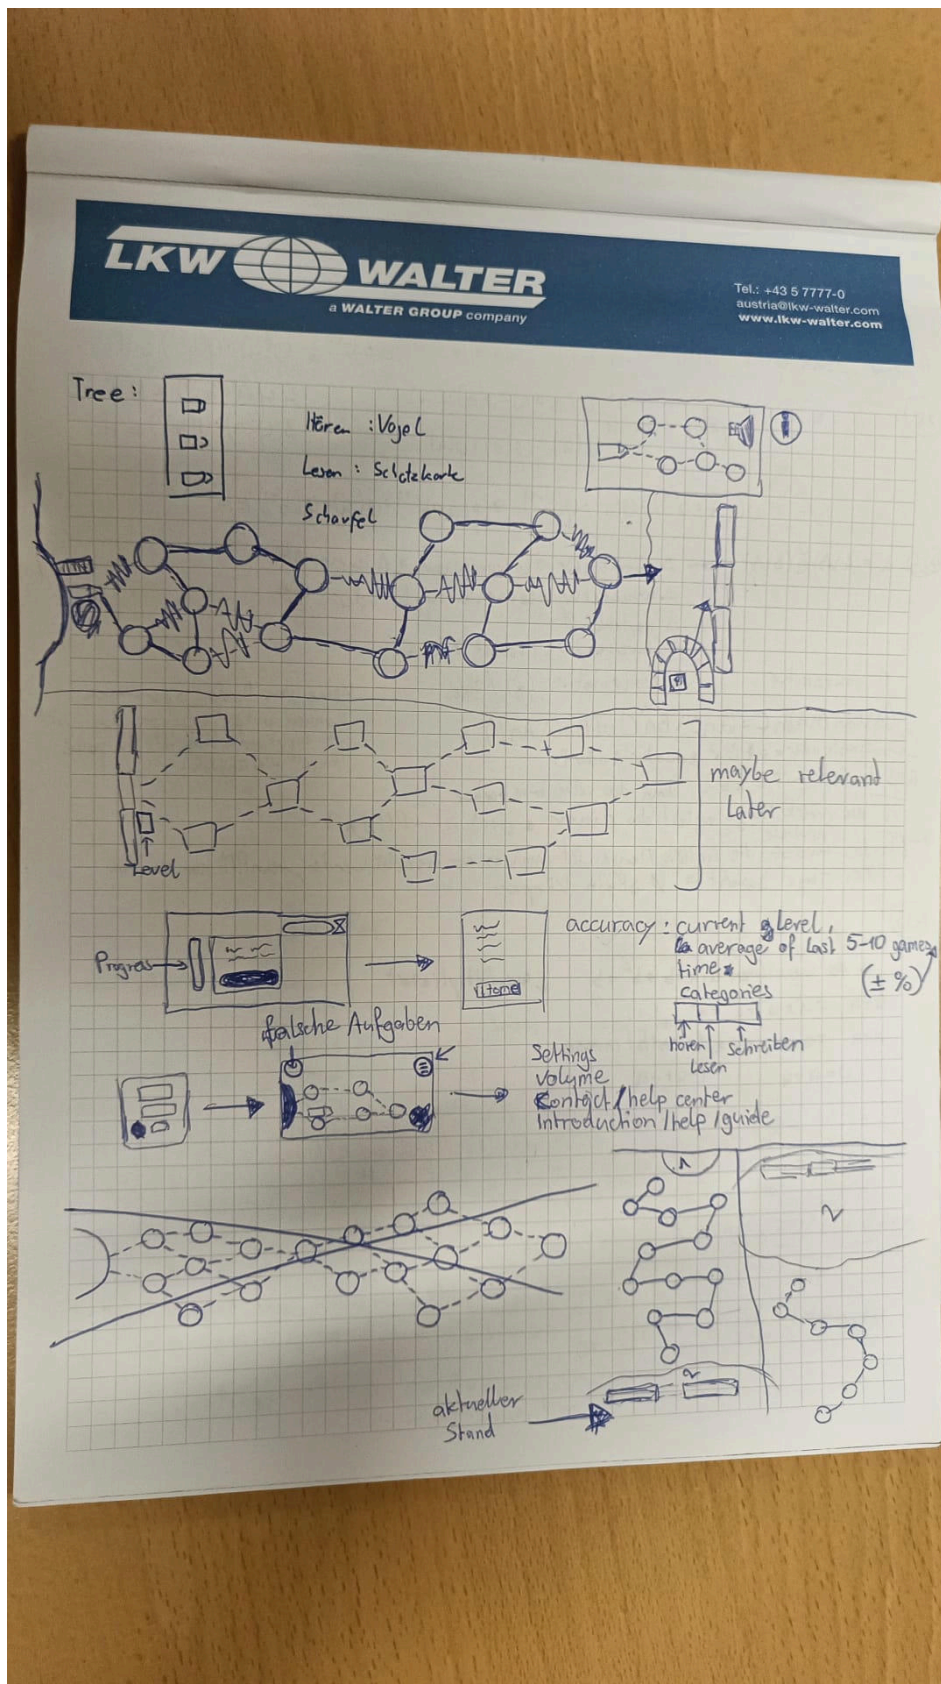 LKW WALTER
a WALTER GROUP company
Tel.: +43 5 7777-0
austria@lkw-walter.com
www.lkw-walter.com
Tree:
Hören : Vogel
Lesen : Schatzkarte
Schaufel
maybe relevant
Later
Level
Progress
Home
accuracy : current level,
average of last 5-10 games
time
(± %)
categories
hören
Lesen
Schreiben
falsche Aufgaben
Settings
Volume
Contact/help center
Introduction/help/guide
1
2
2
aktueller
Stand